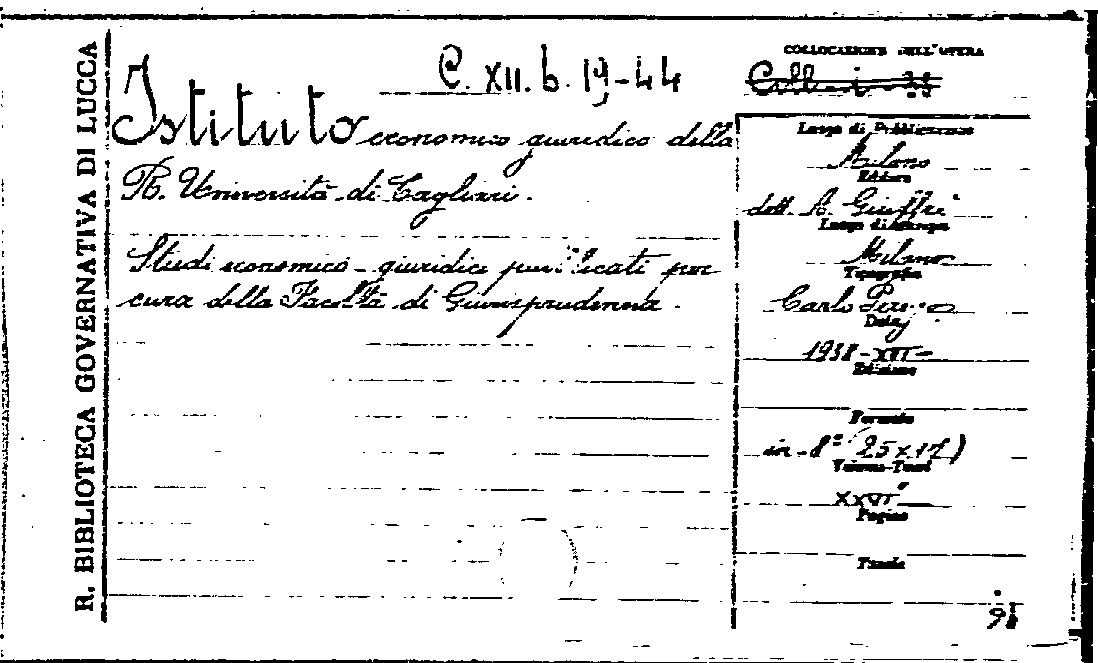 R. BIBLIOTECA GOVERNATIVA DI LUCCA
C. XII. b. 19-44
Istituto economico giuridico della
R. Università di Cagliari.
Studi economico-giuridici pubblicati per
cura della Facoltà di Giurisprudenza.
COLLOCAZIONE DELL'OPERA
Luogo di Pubblicazione
Milano
Editore
dott. A. Giuffrè
Luogo di stampa
Milano
Tipografia
Carlo
Data
1938-XVI-
Edizione
Formato
in-8° (25x17)
Volume-Tomi
XXVI°
Pagine
Tavole